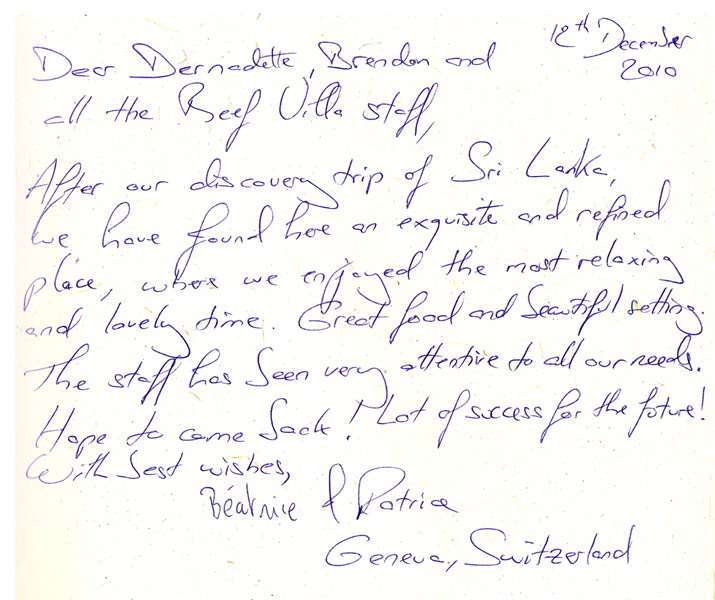 12th December
2010
Dear Bernadette, Brendon and
all the Reef Villa staff,
After our discovery trip of Sri Lanka,
we have found here an exquisite and refined
place, where we enjoyed the most relaxing
and lovely time. Great food and beautiful setting.
The staff has been very attentive to all our needs.
Hope to come back! Lot of success for the future!
With best wishes,
Béatrice & Patrice
Geneva, Switzerland